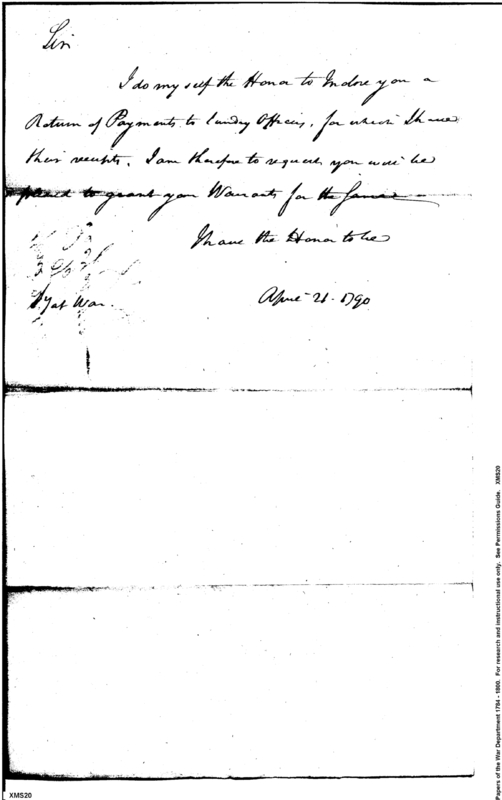 Sir
I do my self the Honor to Inclose you a
Return of Payments to Sundry Officers, for which I have
their receipts. I am therefore to request you will be
pleased to grant your Warrants for the same
I have the Honor to be
Sy at War.
April 21. 1790
Papers of the War Department 1784 - 1800. For research and instructional use only. See Permissions Guide. XMS20
XMS20